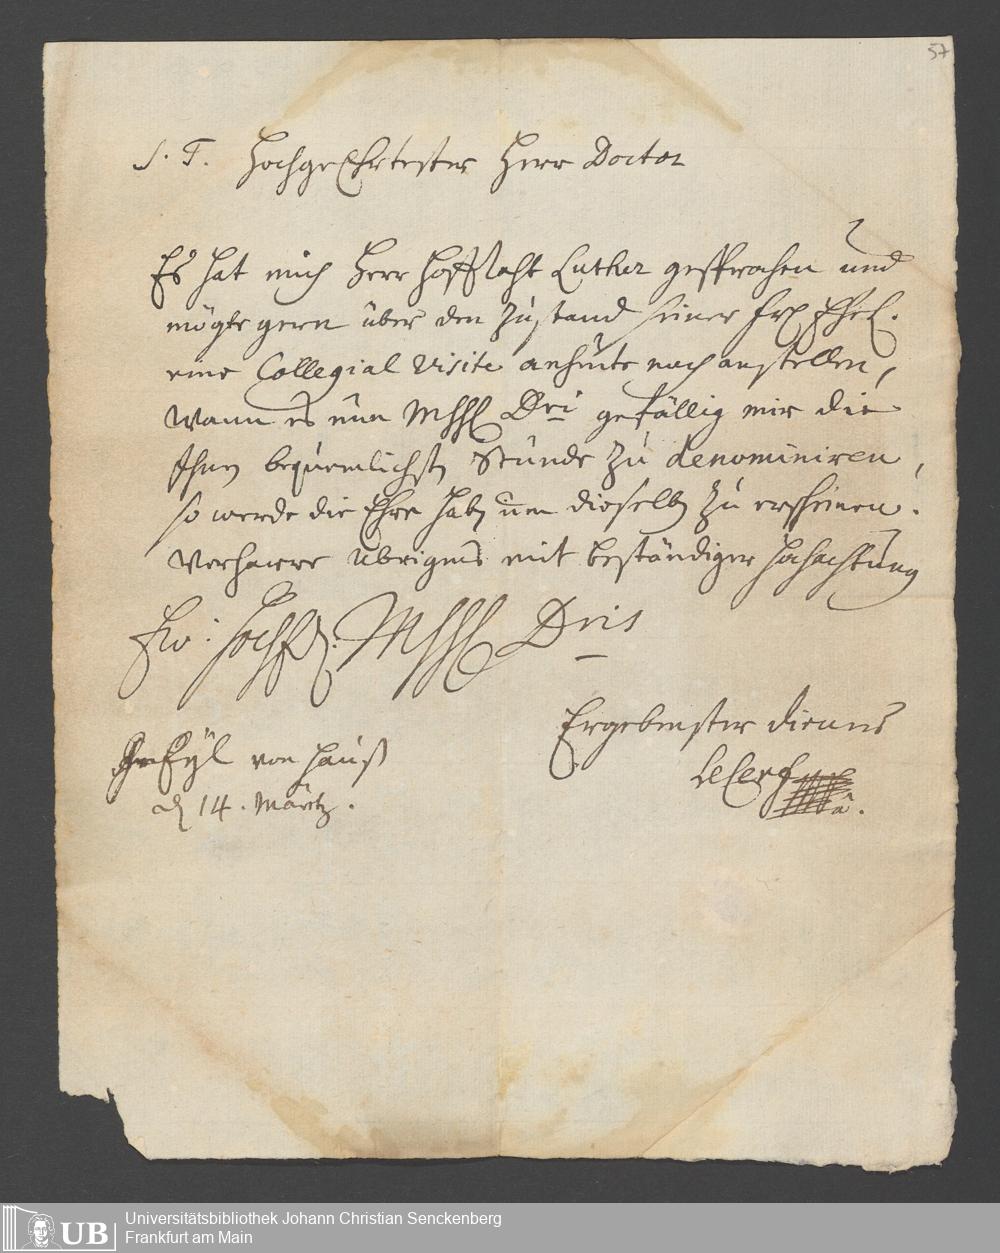 57
S. T. HochgeEhrtester Herr Doctor
Es hat mich Herr Hoffraht Luther gesprochen und
mögte gern über den Zustand seiner
eine Collegial visite anheute noch anstellen,
Wann es nun MhhE Dri gefällig mir die
Ihnen bequemlichste Stunde zu denominiren,
so werde die Ehre haben um dieselbe zu erscheinen.
Verharre übrigens mit beständiger Hochachtung
Ew: MhhE Dris
Ergebenster diener
von Hauß
d 14. Märtz.
UB
Universitätsbibliothek Johann Christian Senckenberg
Frankfurt am Main